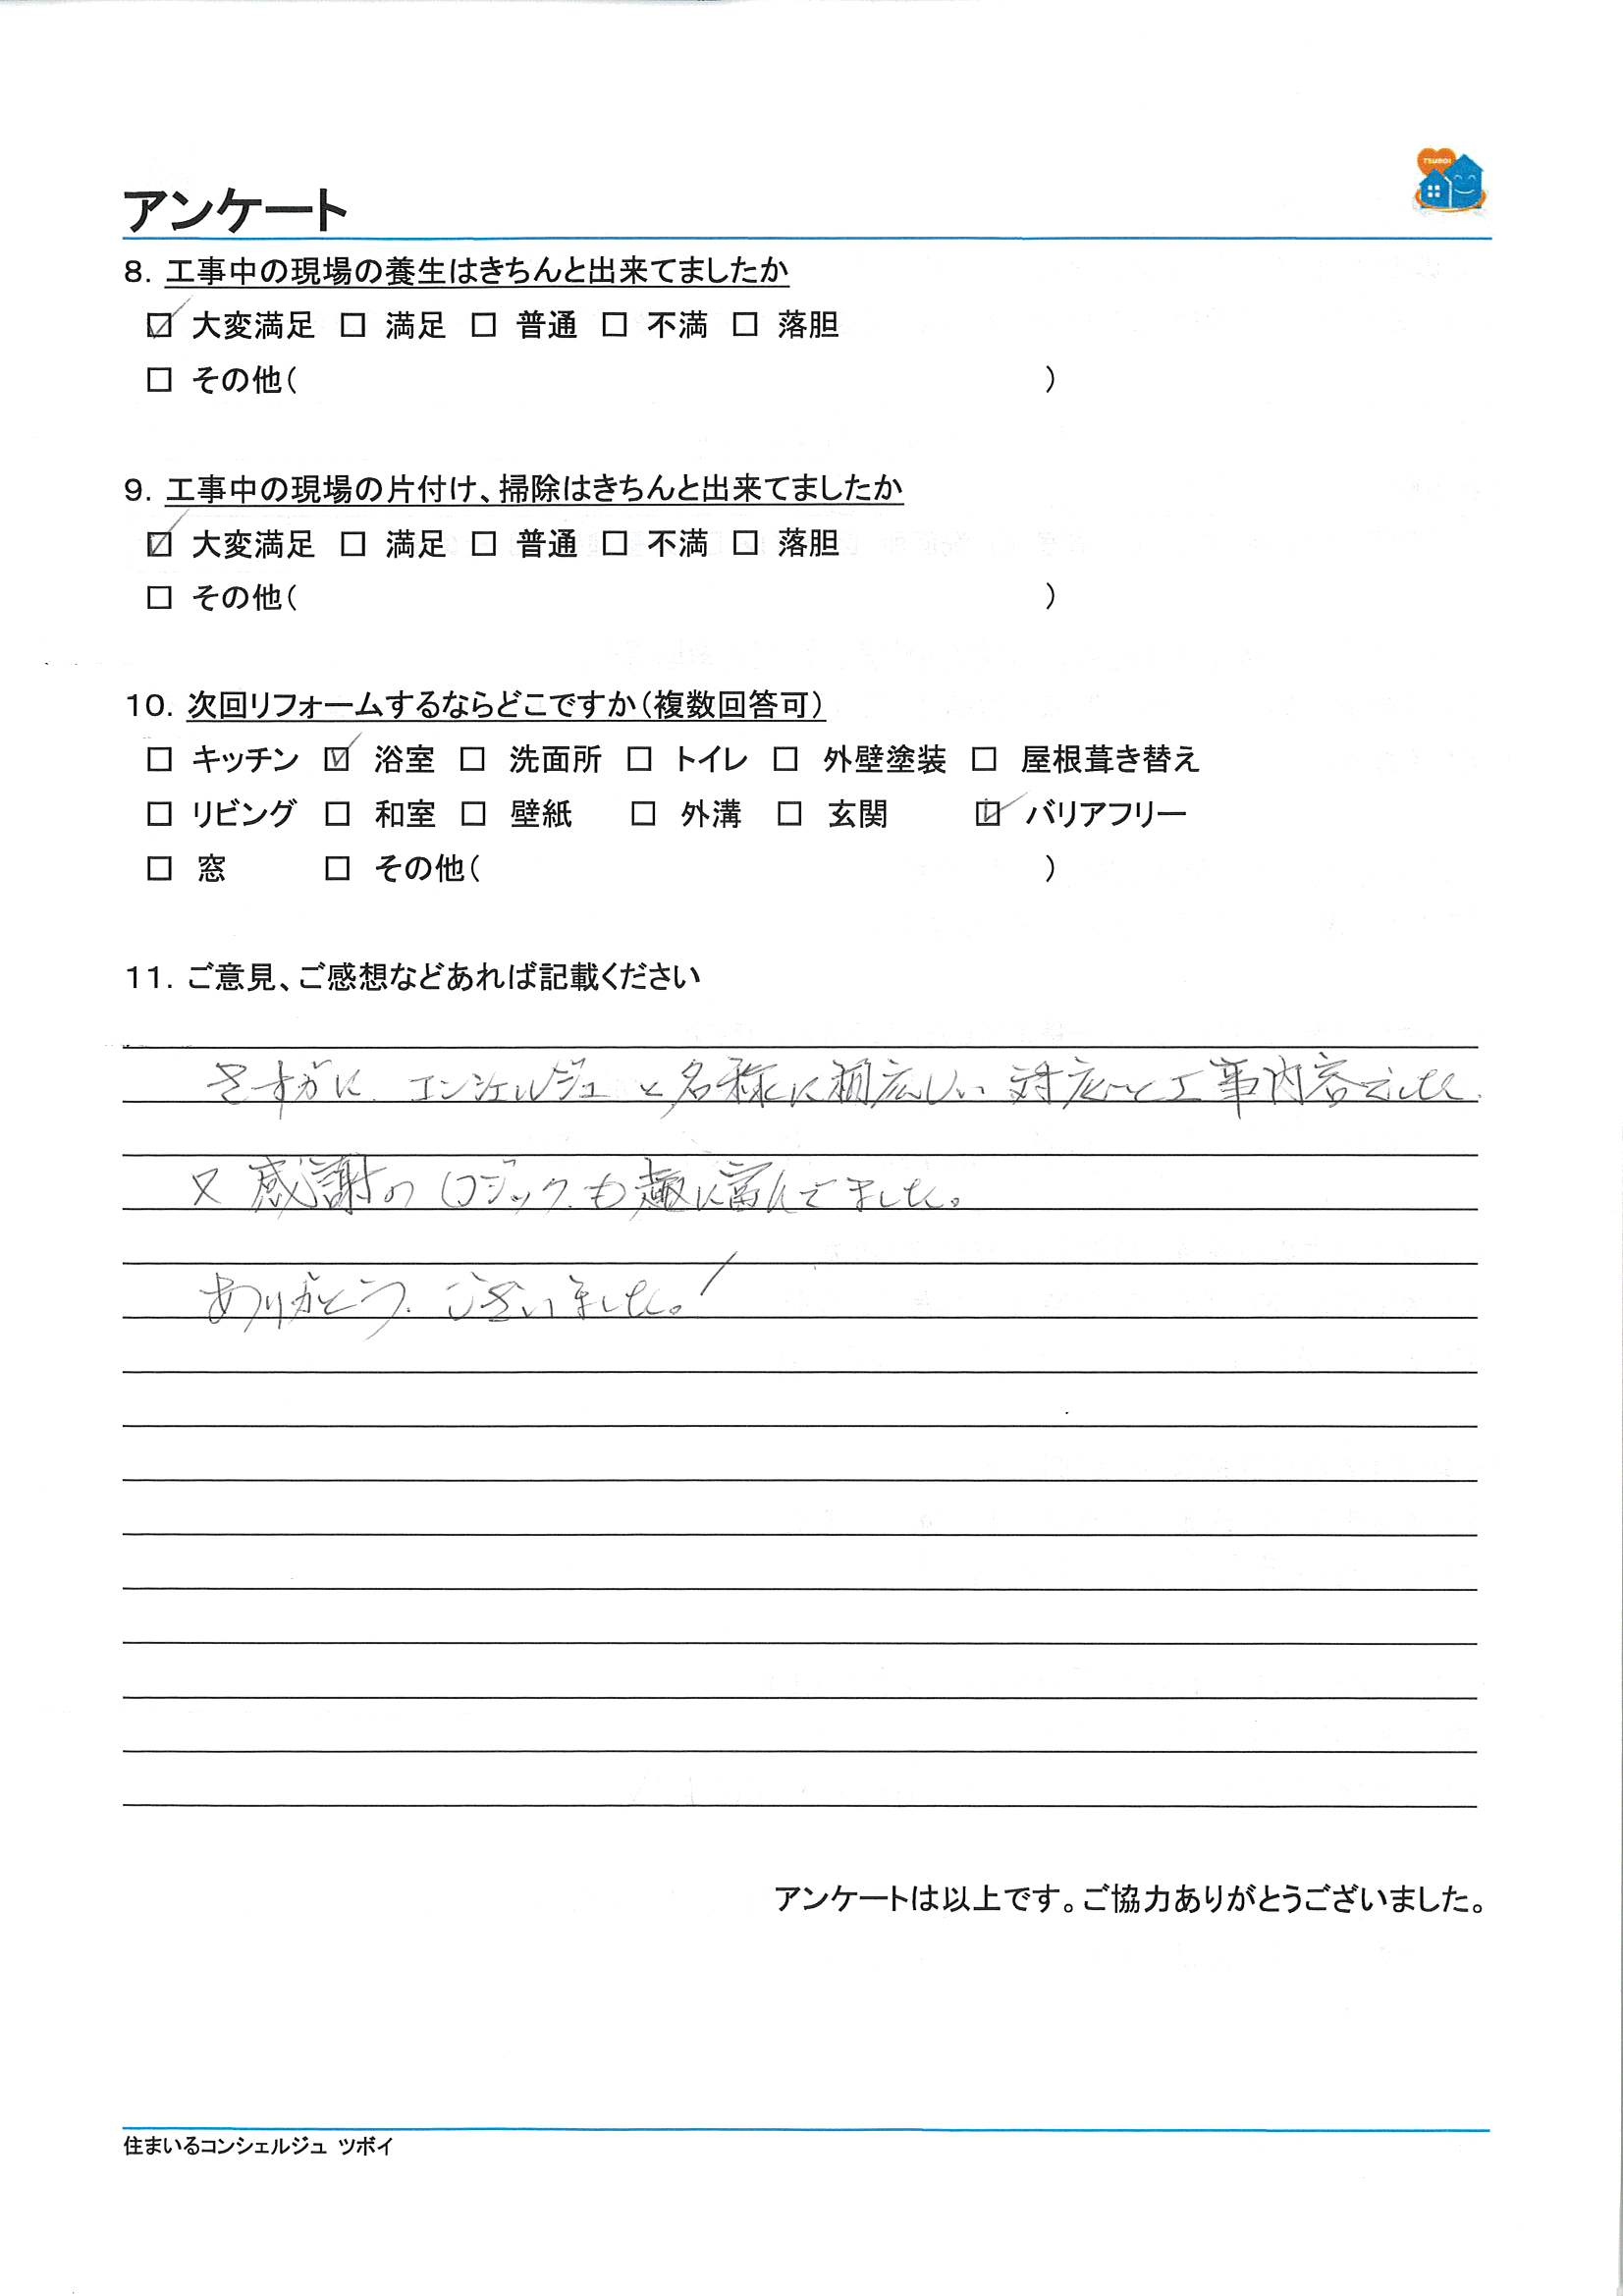 TSUBOI
アンケート
8. 工事中の現場の養生はきちんと出来てましたか
☑ 大変満足 □ 満足 □ 普通 □ 不満 □ 落胆
□ その他( )
9. 工事中の現場の片付け、掃除はきちんと出来てましたか
☑ 大変満足 □ 満足 □ 普通 □ 不満 □ 落胆
□ その他( )
10. 次回リフォームするならどこですか(複数回答可)
□ キッチン ☑ 浴室 □ 洗面所 □ トイレ □ 外壁塗装 □ 屋根葺き替え
□ リビング □ 和室 □ 壁紙 □ 外溝 □ 玄関 ☑ バリアフリー
□ 窓 □ その他( )
11. ご意見、ご感想などあれば記載ください
さすがに、エンシェルジュと名称に相応しい対応と工事内容でした。
又感謝のロジックも趣に富んでました。
ありがとう、ございました。!
アンケートは以上です。ご協力ありがとうございました。
住まいるコンシェルジュ ツボイ